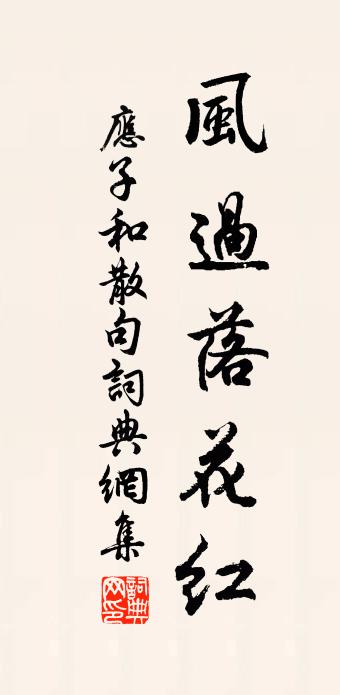 風過落花紅
應子和散句詞典網集
詞典网印